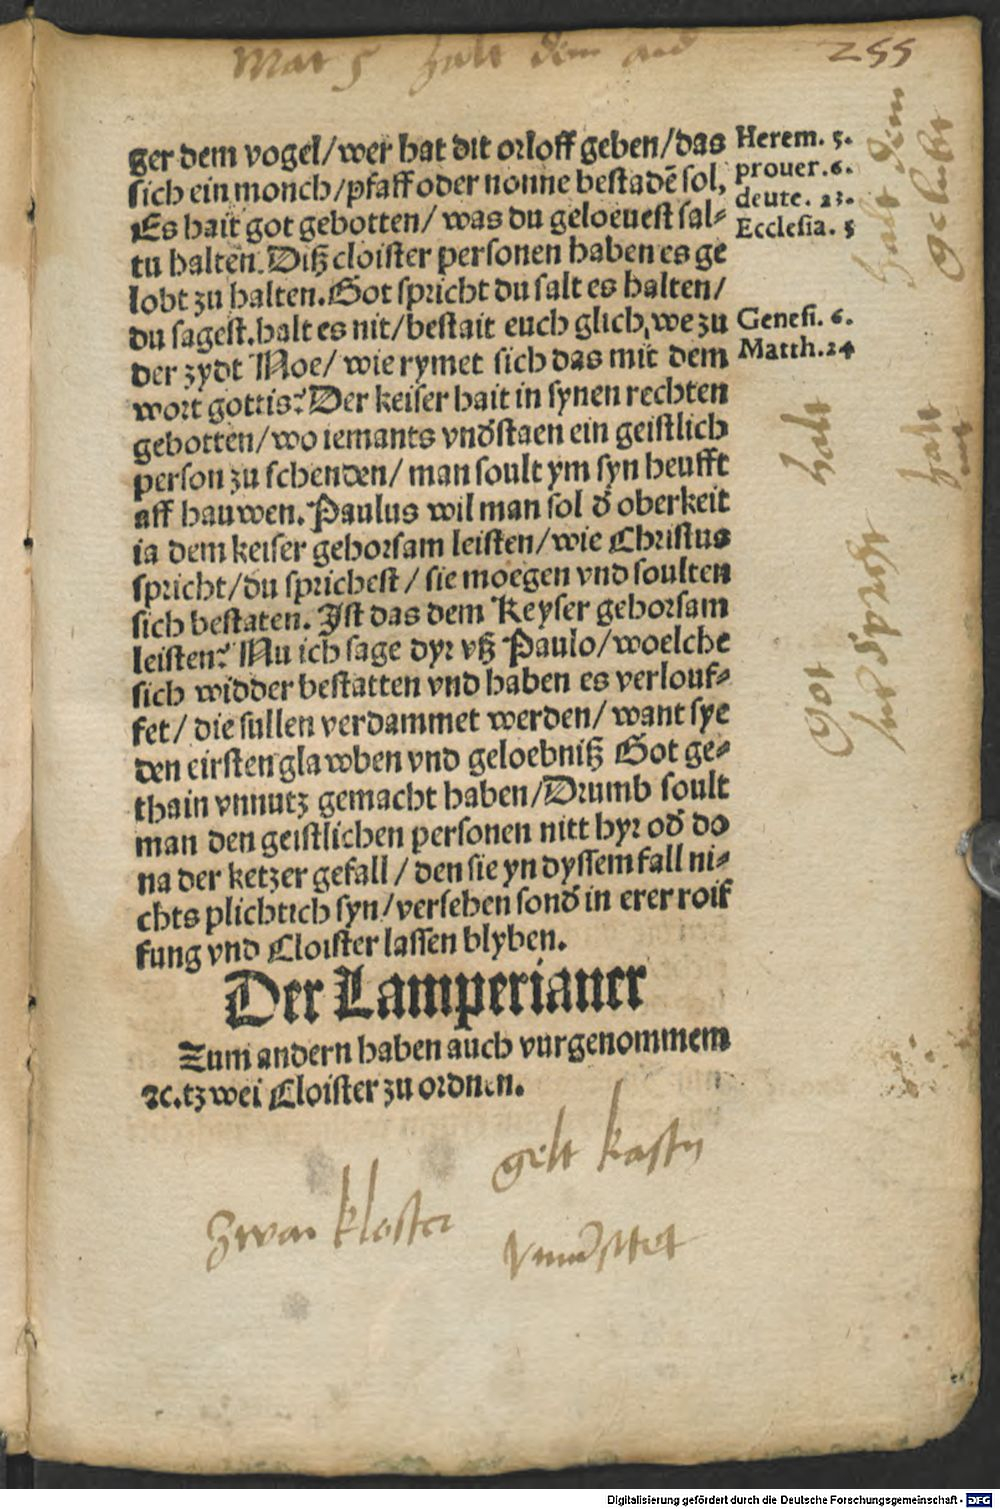 Mat 5 halt dem
255
ger dem vogel/wer hat dit orloff geben/das
sich ein monch/pfaff oder nonne bestadē sol,
Es hait got gebotten/ was du geloeuest sal⸗
tu halten. Diß cloister personen haben es ge
lobt zu halten. Got spricht du salt es halten/
du sagest. halt es nit/bestait euch glich, we zu
der zydt Noe/ wie rymet sich das mit dem
wort gottis? Der keiser hait in synen rechten
gebotten/wo iemants vnd̄staen ein geistlich
person zu schenden/ man soult ym syn heufft
aff hauwen. Paulus wil man sol d̄ oberkeit
ia dem keiser gehorsam leisten/wie Christus
spricht/du sprichest/ sie moegen vnd soulten
sich bestaten. Ist das dem Keyser gehorsam
leisten? Nu ich sage dyr vß Paulo/woelche
sich widder bestatten vnd haben es verlouf⸗
fet/ die sullen verdammet werden/ want sye
den eirsten glawben vnd geloebniß Got ge⸗
thain vnnutz gemacht haben/Drumb soult
man den geistlichen personen nitt hyr od̄ do
na der ketzer gefall/ den sie yn dyssem fall ni⸗
chts plichtich syn/versehen sond̄ in erer roif
fung vnd Cloister lassen blyben.
Der Lamperianer
Zum andern haben auch vurgenommem
ꝛc. tzwei Cloister zu ordnen.
Herem. 5.
prouer. 6.
deute. 23.
Ecclesia. 5
Genesi. 6.
Matth. 24
halt dem
gelubt
halt
halt
nit
Got
spricht
gelt kastn
zwai kloster